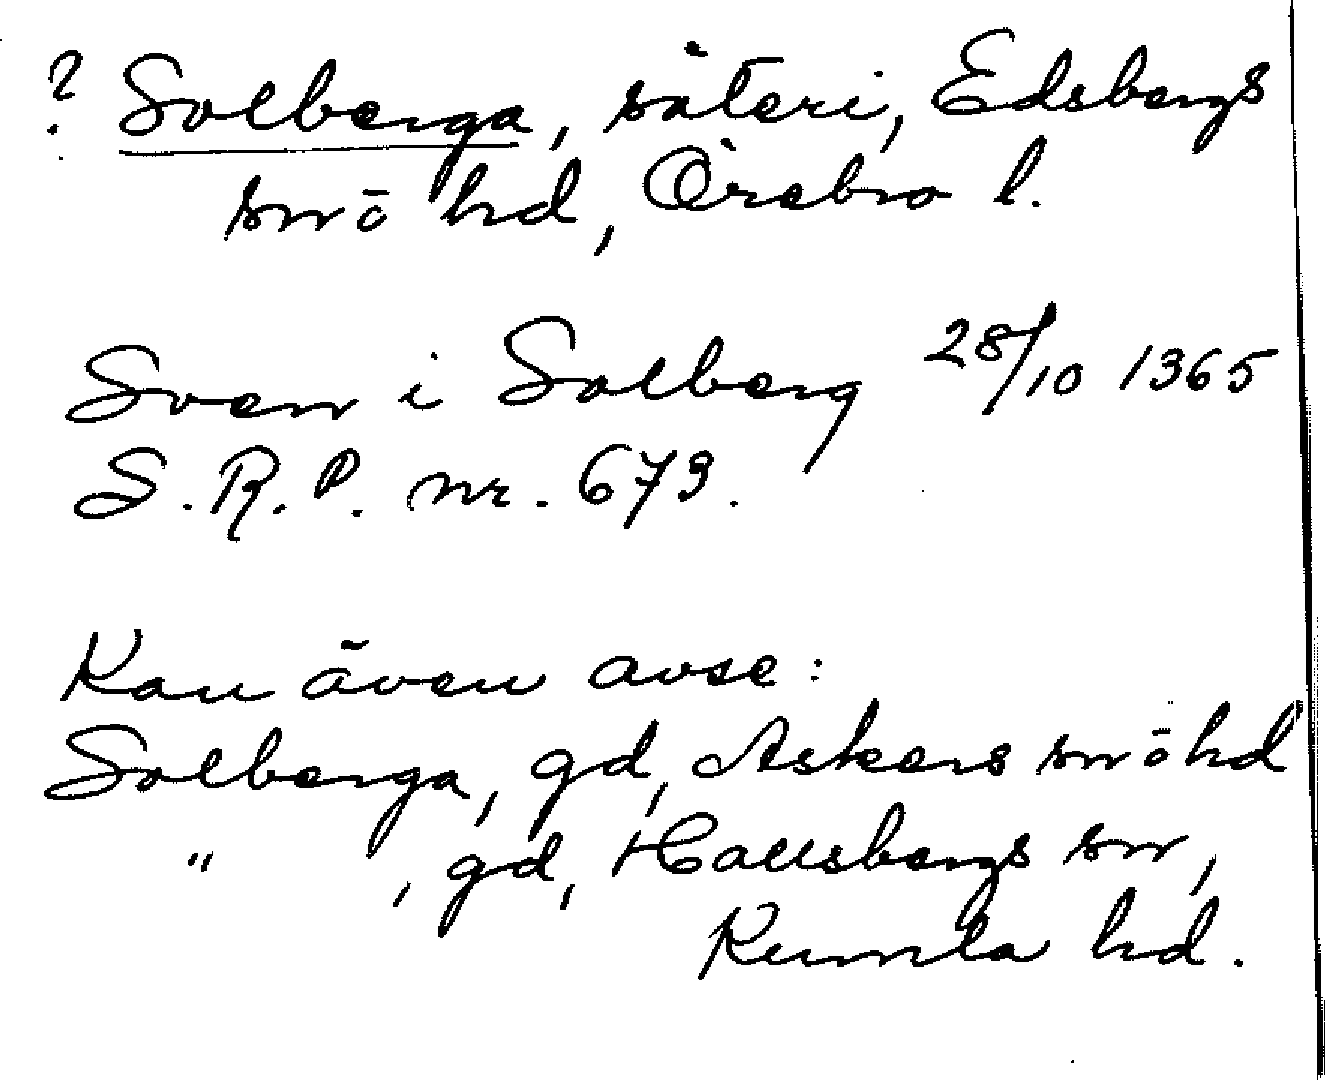 ? Solberga, säteri, Edsbergs
sn ō hd, Örebro l.
Sven i Solberg 28/10 1365
S. R. P. nr. 673.
Kan även avse:
Solberga, gd, Askers sn ō hd
" , gd, Hallsbergs sn,
Kumla hd.